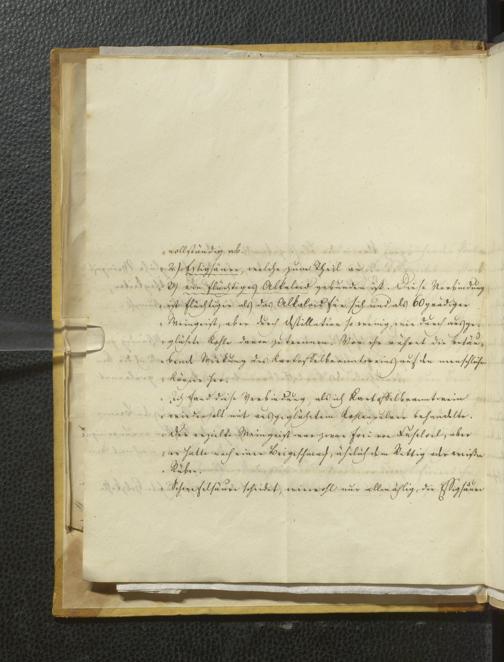 vollständig ab.
2.) Essigsäure, welche zum Theil an
3) ein flüchtiges Alkaloid gebunden ist. Diese Verbindung
ist flüchtiger als das Alkaloid für sich und als 60grädiger
Weingeist, aber durch Destillation so wenig, wie durch ausge-
glühte Kohle davon zu trennen. Von ihr rührt die betäu-
bende Wirkung des Kartoffelbranntweins auf den menschlichen
Körper her.
Ich fand diese Verbindung, als ich Kartoffelbranntwein
wiederholt mit ausgeglühtem Kohlenpulver behandelte.
Der erzielte Weingeist war zwar frei von Fuselöl, aber
er hatte noch einen Beigeschmack, ähnlich dem Rettig oder weißen
Rüben.
Schwefelsäure scheidet, wiewohl nur allmählig, die Essigsäure